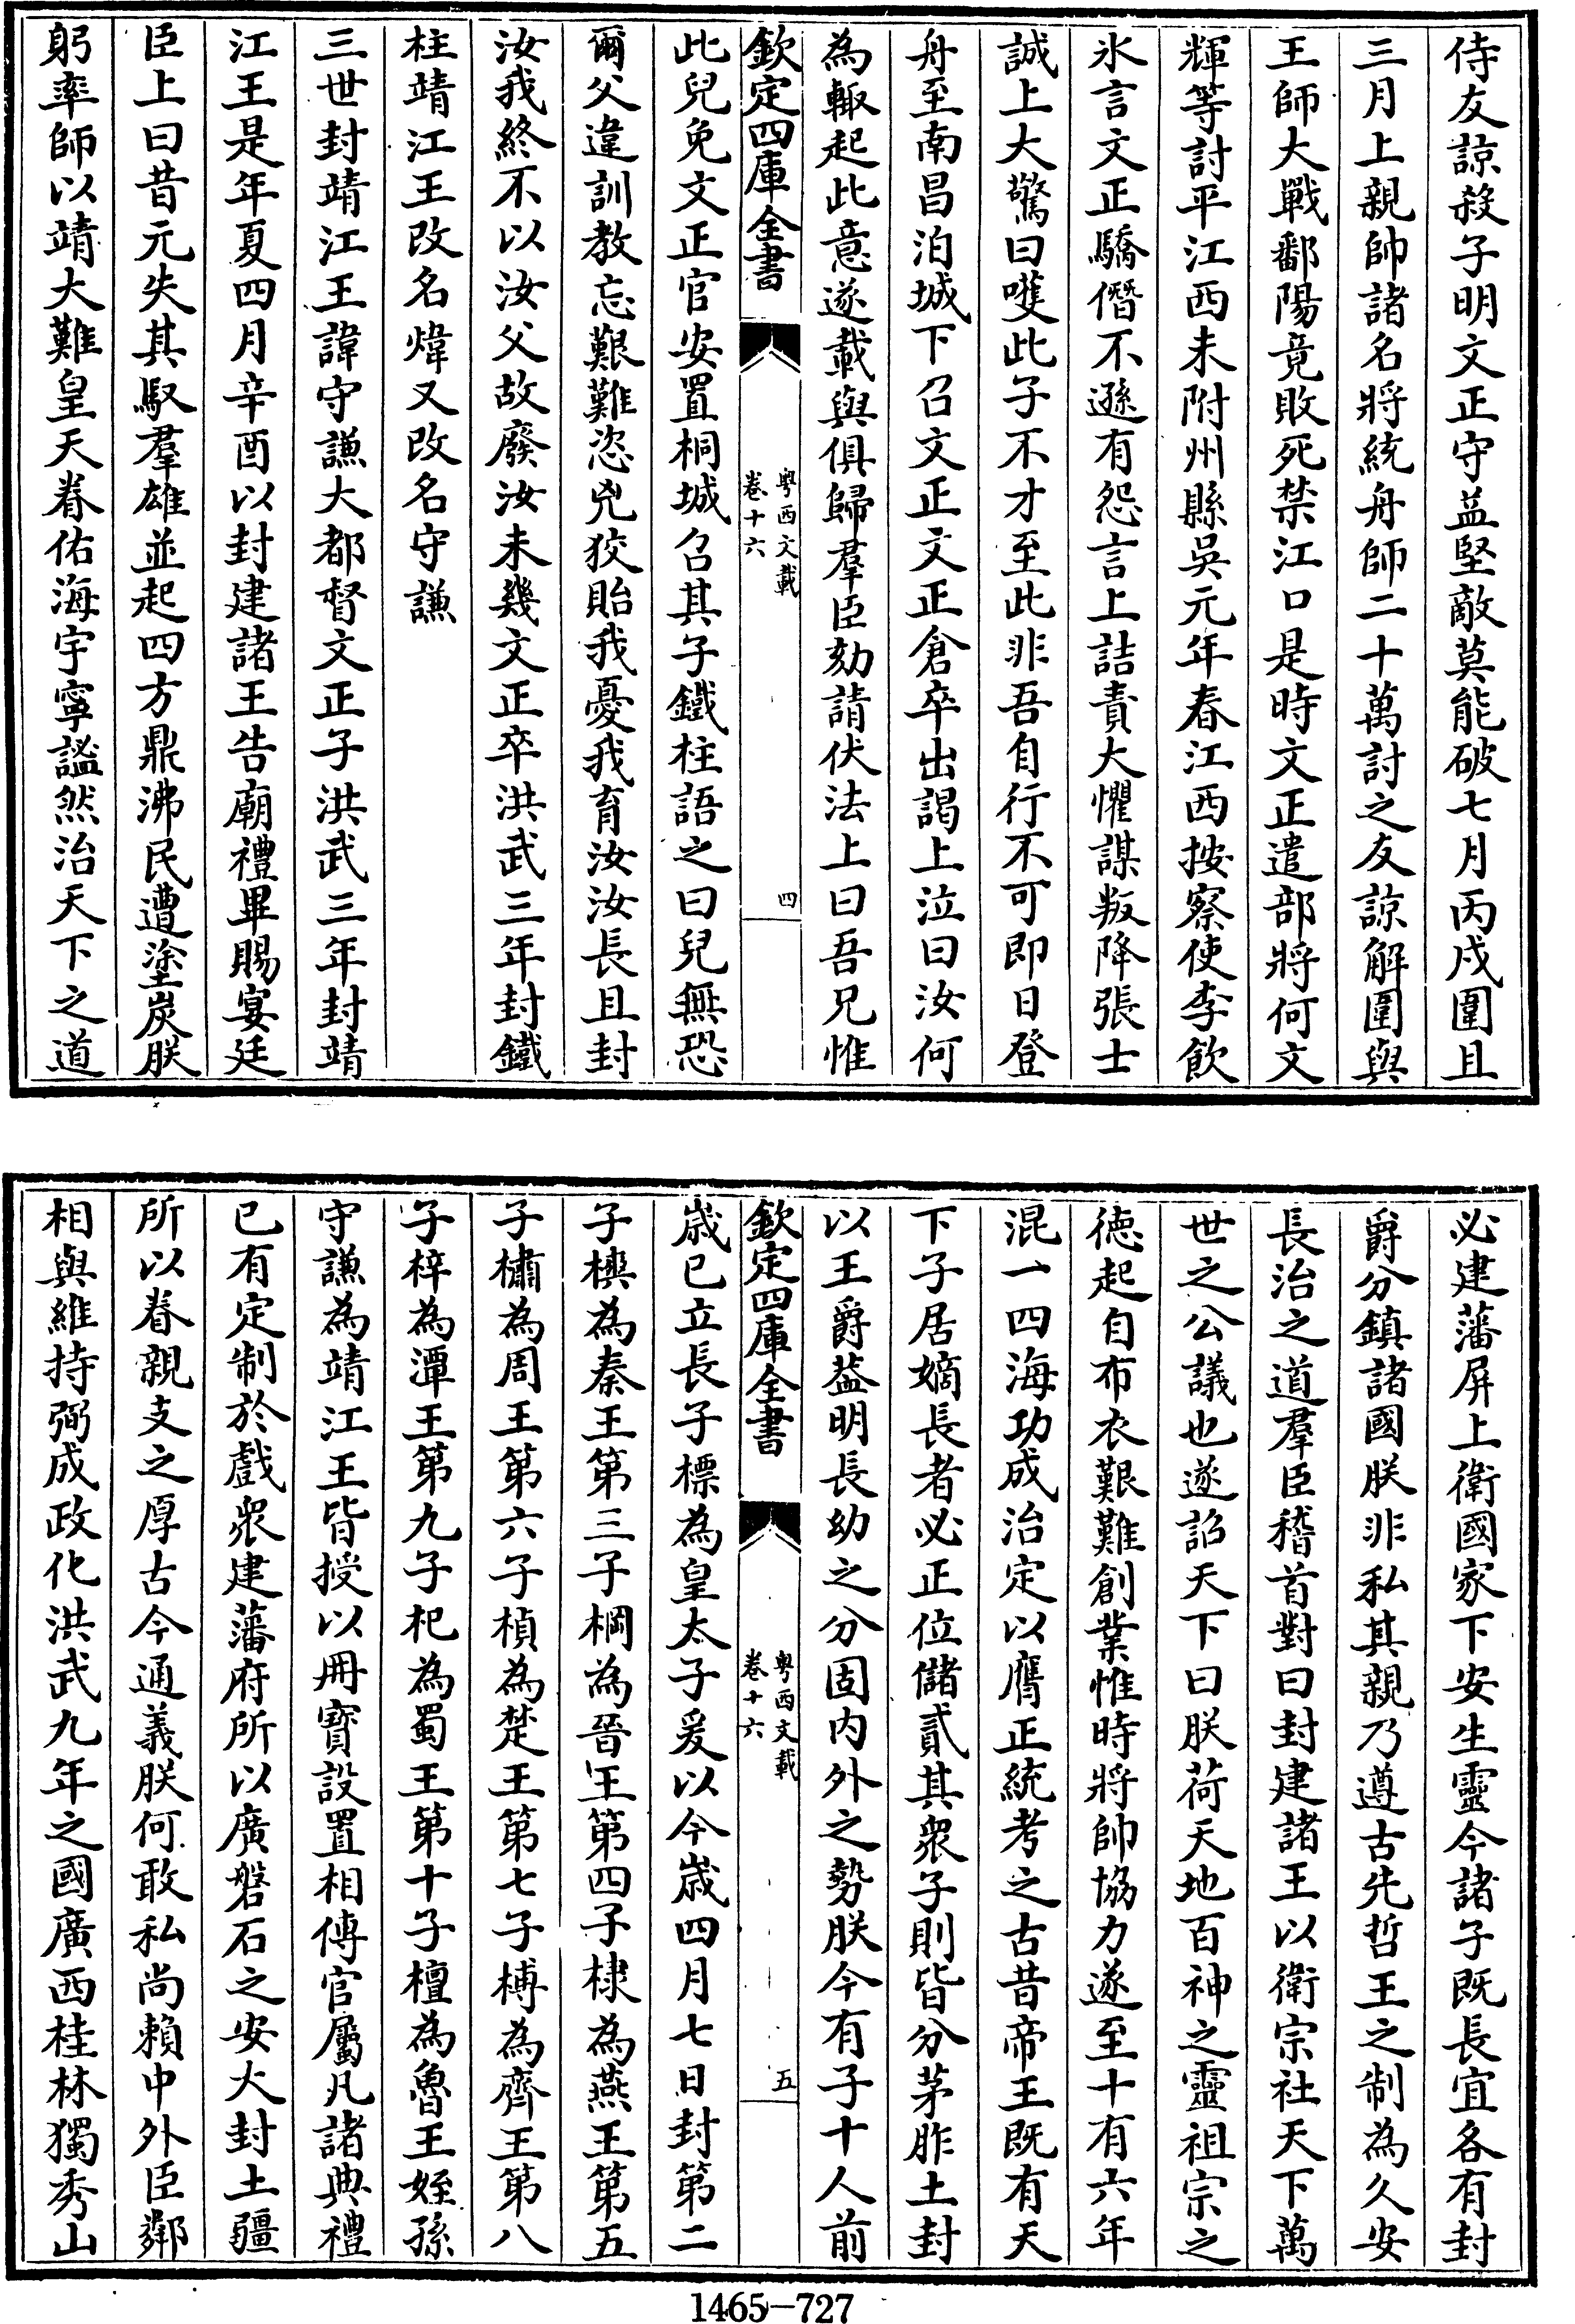 侍友諒殺子明文正守益堅敵莫能破七月丙戍圍且
三月上親帥諸名將統舟師二十萬討之友諒解圍與
王師大戰鄱陽竟敗死禁江口是時文正遣部將何文
輝等討平江西未附州縣吳元年春江西按察使李飲
氷言文正驕僭不遜有怨言上詰責大懼謀叛降張士
誠上大驚曰嘆此子不才至此非吾自行不可即日登
舟至南昌泊城下召文正文正倉卒出謁上泣曰汝何
為輙起此意遂載與俱歸羣臣劾請伏法上曰吾兄惟
欽定四庫全書
粤西文載
卷十六
四
此兒免文正官安置桐城召其子鐵柱語之曰兒無恐
爾父違訓教忘艱難恣兇狡貽我憂我育汝汝長且封
汝我終不以汝父故廢汝未幾文正卒洪武三年封鐵
柱靖江王改名煒又改名守謙
三世封靖江王諱守謙大都督文正子洪武三年封靖
江王是年夏四月辛酉以封建諸王告廟禮畢賜宴廷
臣上曰昔元失其馭羣雄並起四方鼎沸民遭塗炭朕
躬率師以靖大難皇天眷佑海宇寧謐然治天下之道
必建藩屏上衛國家下安生靈今諸子既長宜各有封
爵分鎮諸國朕非私其親乃遵古先哲王之制為久安
長治之道羣臣稽首對曰封建諸王以衛宗社天下萬
世之公議也遂詔天下曰朕荷天地百神之靈祖宗之
德起自布衣艱難創業惟時將帥協力遂至十有六年
混一四海功成治定以膺正統考之古昔帝王既有天
下子居嫡長者必正位儲貳其衆子則皆分茅胙土封
以王爵葢明長幼之分固内外之勢朕今有子十人前
欽定四庫全書
粤西文載
卷十六
五
歲已立長子標為皇太子爰以今歲四月七日封第二
子樉為秦王第三子棡為晉王第四子棣為燕王第五
子橚為周王第六子楨為楚王第七子榑為齊王第八
子梓為潭王第九子杞為蜀王第十子檀為魯王姪孫
守謙為靖江王皆授以冊寶設置相傅官屬凡諸典禮
已有定制於戲衆建藩府所以廣磐石之安大封土疆
所以眷親支之厚古今通義朕何敢私尚賴中外臣鄰
相與維持弼成政化洪武九年之國廣西桂林獨秀山
1465-727